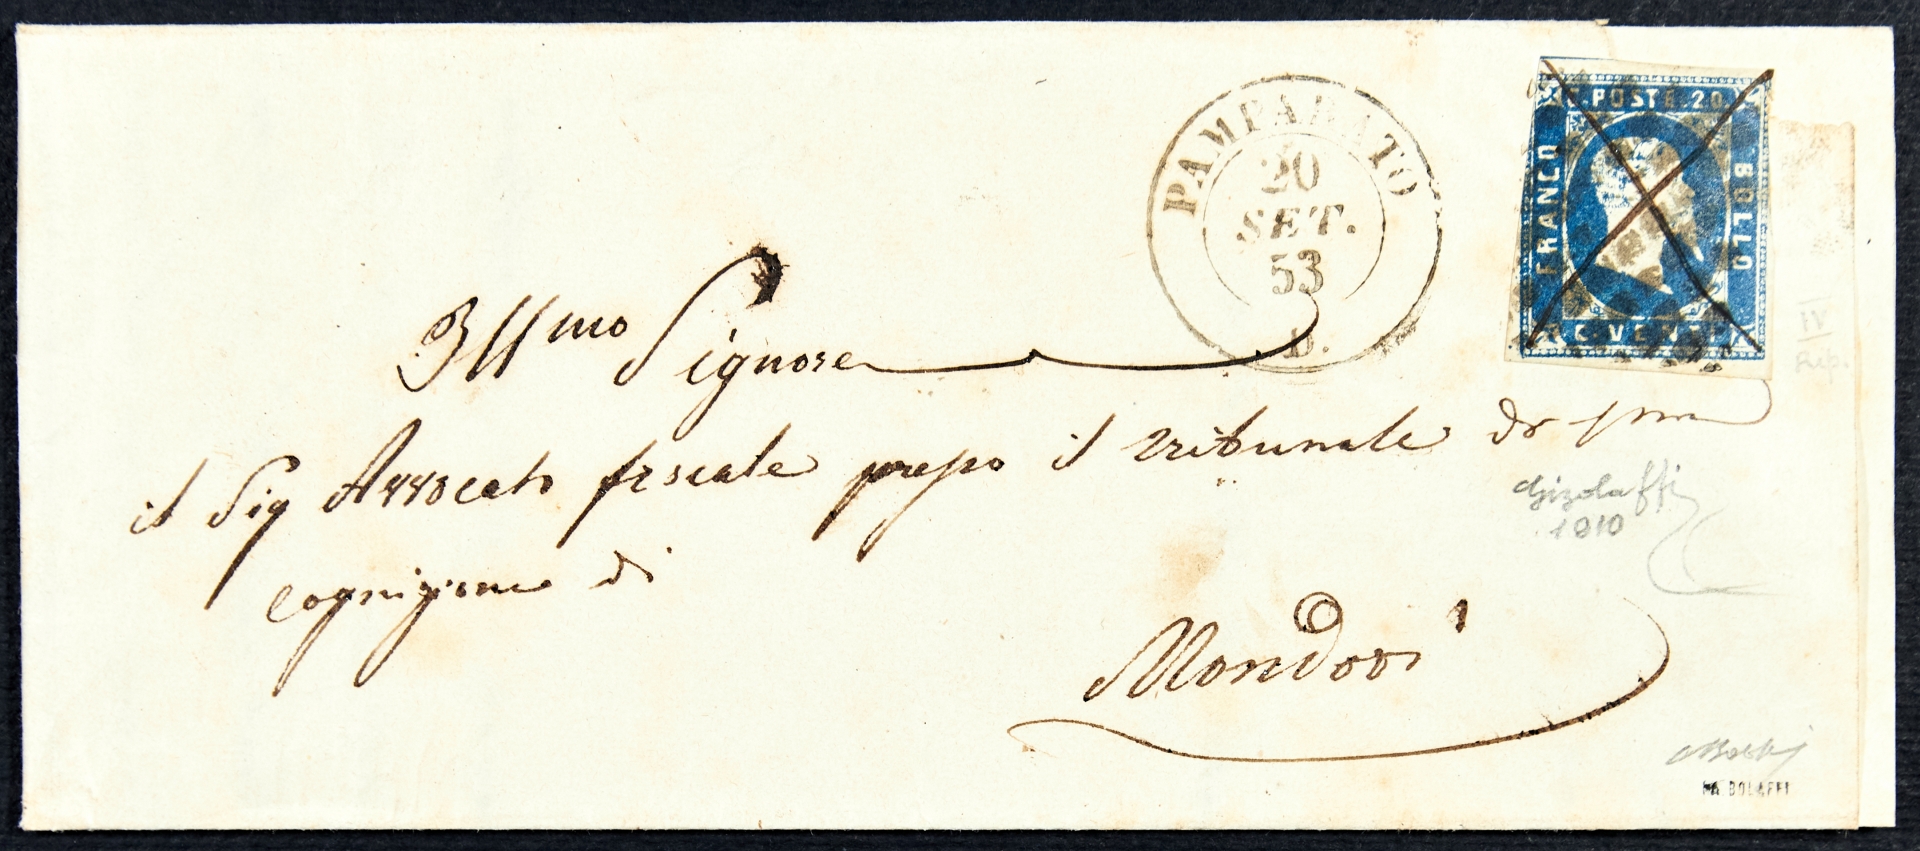 PAMPARATO
20
SET.
53
D.
C. POSTE. 20.
FRANCO
BOLLO
C. VENTI
Ill mo Signore
il Sig Avvocato fiscale presso il tribunale di pma
cognizione di
Mondovì
IV
Rip.
1910
A. BOLAFFI